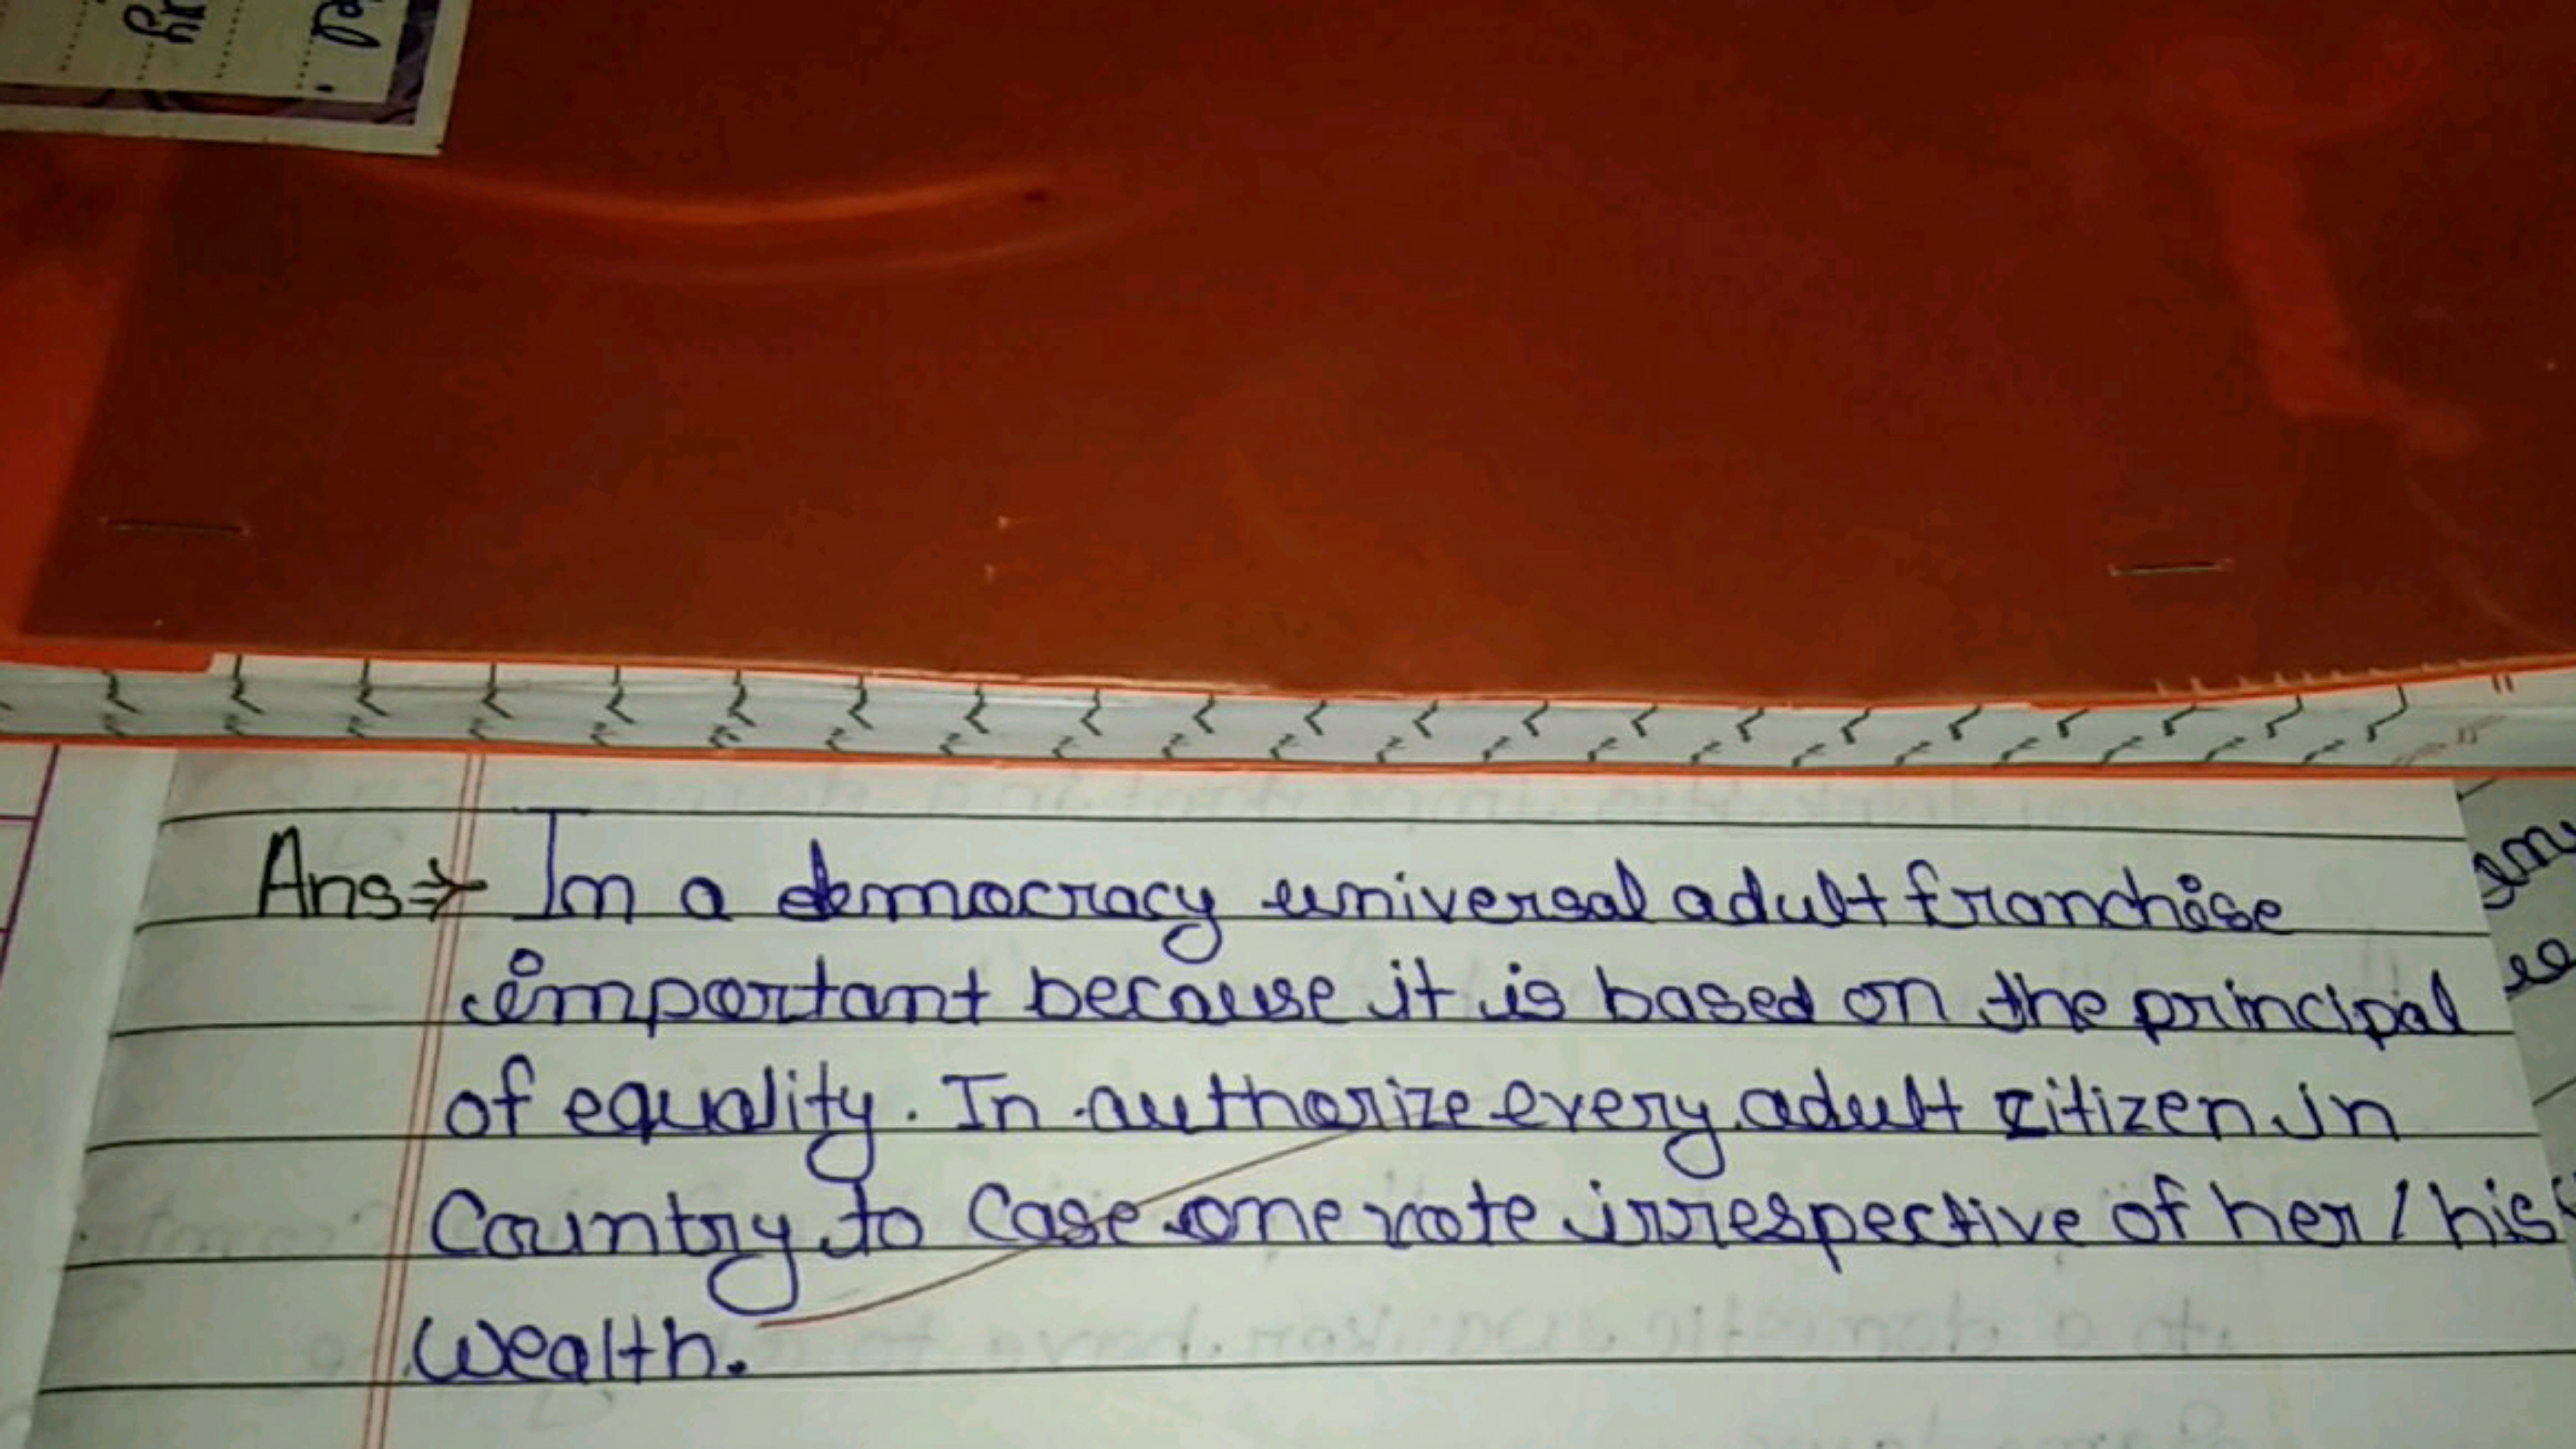 Ans⇒ In a democracy universal adult franchise
important because it is based on the principal
of equality. In authorize every adult citizen in
Country to Case one vote irrespective of her / his
wealth.